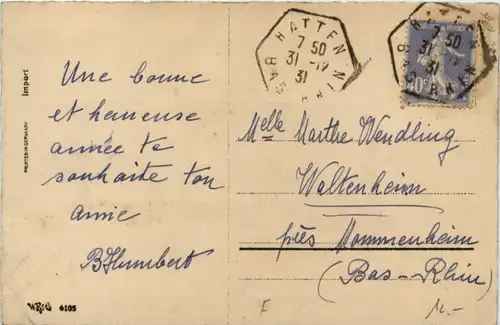 Une bonne
et heureuse
année te
souhaite ton
amie
B. Humbert
Melle Marthe Wendling
Waltenheim
près Mommenheim
(Bas-Rhin)
HATTEN
7 50
31
31
BAS RHIN
HATTEN
7 50
31
31
BAS RHIN
40c
Import
PRINTED IN GERMANY
6105
F